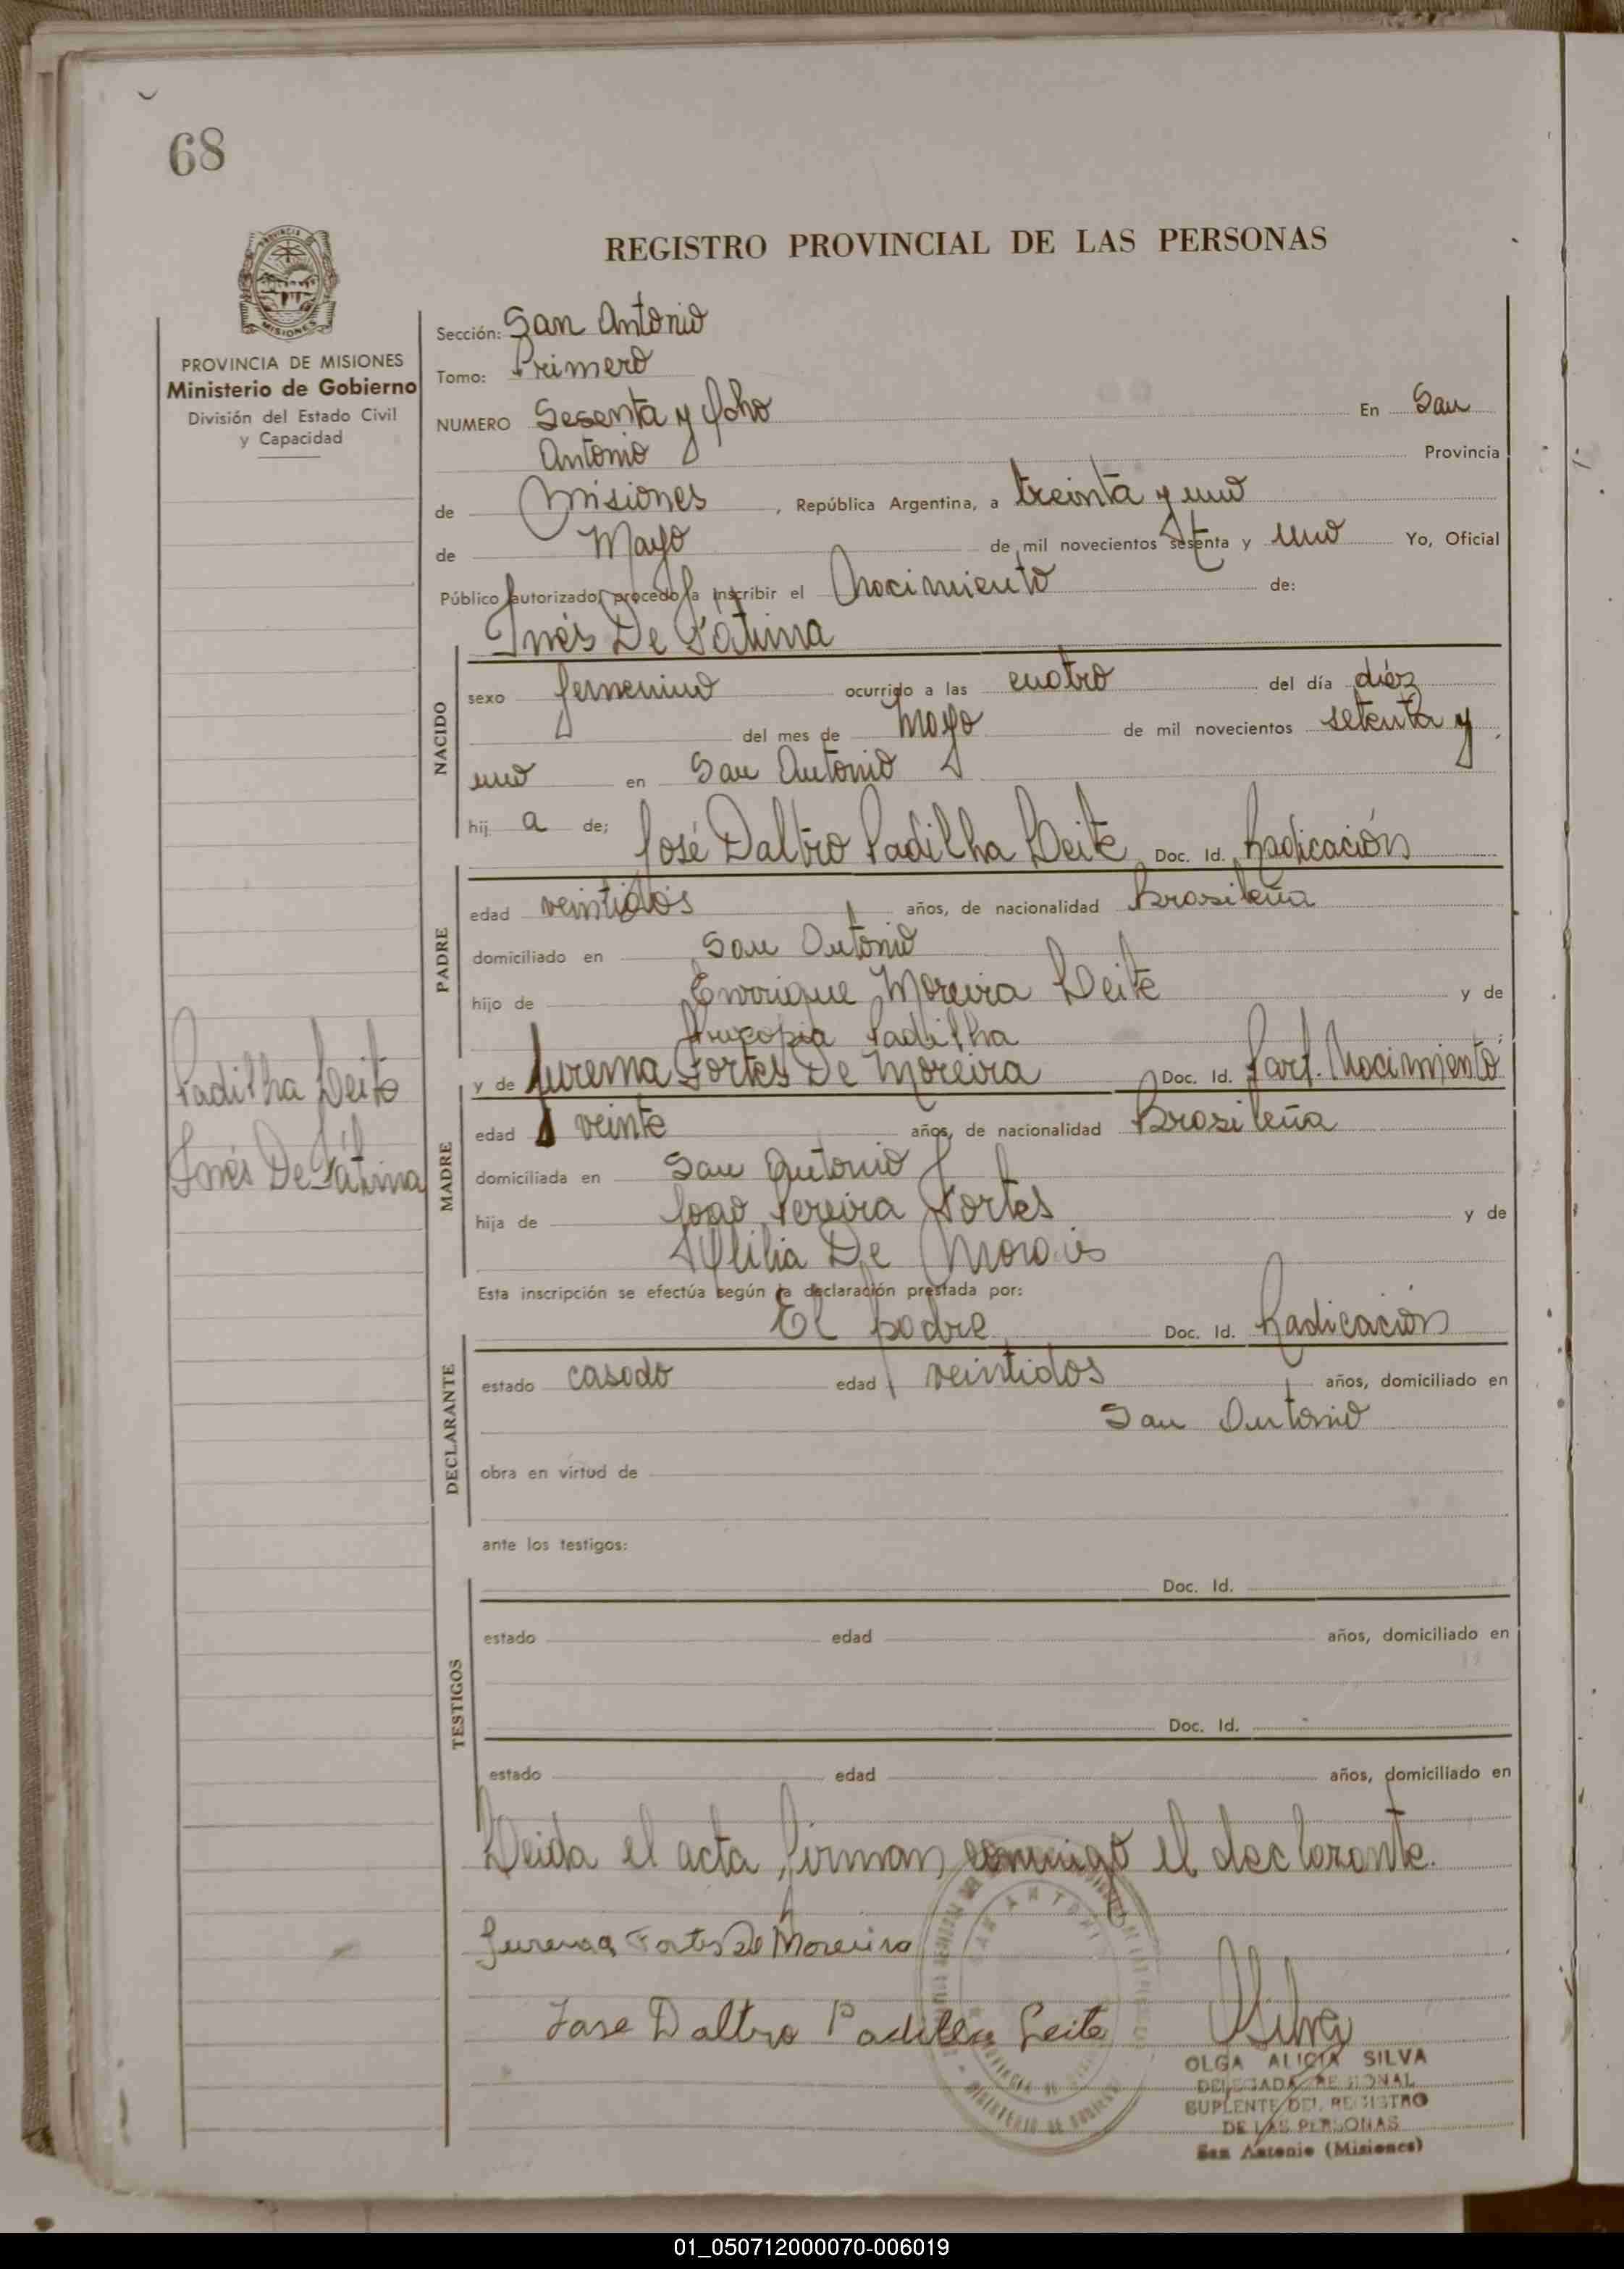 68
REGISTRO PROVINCIAL DE LAS PERSONAS
PROVINCIA DE MISIONES
Ministerio de Gobierno
División del Estado Civil
y Capacidad
Sección: San Antonio
Tomo: Primero
NUMERO Sesenta y Ocho En San
Antonio Provincia
de Misiones, República Argentina, a treinta y uno
de Mayo de mil novecientos setenta y uno Yo, Oficial
Público autorizado, procedo a inscribir el Nacimiento de:
Inés De Fátima
NACIDO
sexo femenino ocurrido a las cuatro del día diéz
del mes de Mayo de mil novecientos setenta y
uno en San Antonio
hij a de; José Daltro Padilha Leite Doc. Id. Radicación
PADRE
edad veintidós años, de nacionalidad Brasileña
domiciliado en San Antonio
hijo de Enrrique Moreira Leite y de
Padilha
y de Jurema Fortes De Moreira Doc. Id. Part. Nacimiento
Padilha Leite
Inés De Fátima
MADRE
edad veinte años, de nacionalidad Brasileña
domiciliada en San Antonio
hija de Joao Pereira Fortes y de
De Morais
Esta inscripción se efectúa según la declaración prestada por:
El padre Doc. Id. Radicación
DECLARANTE
estado casado edad veintidos años, domiciliado en
San Antonio
obra en virtud de
ante los testigos:
TESTIGOS
Doc. Id.
estado edad años, domiciliado en
Doc. Id.
estado edad años, domiciliado en
Leida el acta, firman conmigo el declarante.
Jurema Fortes De Moreira
Jose Daltro Padilha Leite
OLGA ALICIA SILVA
DELEGADA REGIONAL
SUPLENTE DEL REGISTRO
DE LAS PERSONAS
San Antonio (Misiones)
01_050712000070-006019